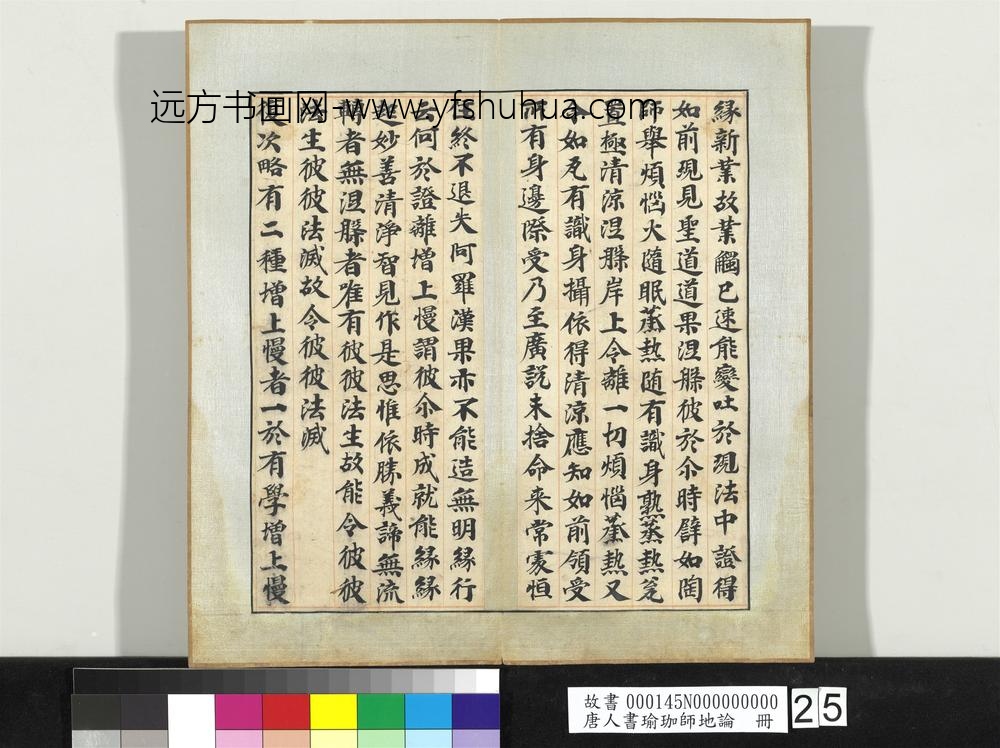 远方书画网-www.yfshuhua.com
緣新業故業觸已速能變吐於現法中證得
如前現見聖道道果涅槃彼於尒時譬如陶
師舉煩惱火隨眠蒸熱隨有識身熟蒸熱瓮
置極清涼涅槃岸上令離一切煩惱蒸熱又
令如瓦有識身攝依得清涼應知如前領受
所有身邊際受乃至廣說未捨命來常處恒
終不退失阿羅漢果亦不能造無明緣行
云何於證離增上慢謂彼尒時成就能緣緣
起妙善清淨智見作是思惟依勝義諦無流
轉者無涅槃者唯有彼彼法生故能令彼彼
法生彼彼法滅故令彼彼法滅
復次略有二種增上慢者一於有學增上慢
故書 000145N000000000
唐人書瑜珈師地論 冊
25